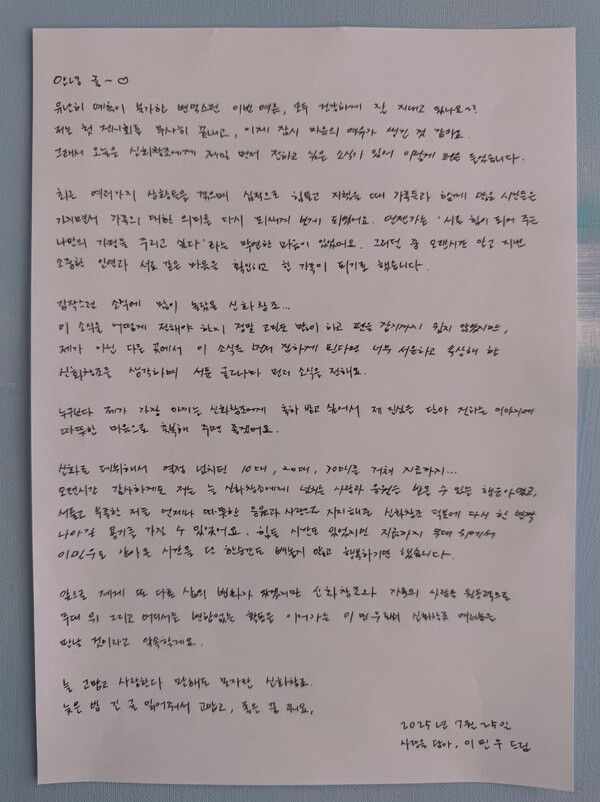 안녕 귤~♡
유난히 예측이 불가한 변덕스런 이번 여름, 모두 건강하게 잘 지내고 있나요~?
저는 첫 전시회를 무사히 끝내고, 이제 잠시 마음의 여유가 생긴 것 같아요.
그래서 오늘은 신화창조에게 제일 먼저 전하고 싶은 소식이 있어 이렇게 펜을 들었습니다.
최근 여러가지 상황들을 겪으며 심적으로 힘들고 지쳤을 때 가족들과 함께 많은 시간들을
가지면서 가족의 대한 의미를 다시 되새겨 보게 되었어요. 언젠가는 '서로 힘이 되어 주는
나만의 가정을 꾸리고 싶다'라는 막연한 마음이 있었어요. 그러던 중 오랜시간 알고 지낸
소중한 인연과 서로 같은 마음을 확인하고 한 가족이 되기로 했습니다.
갑작스런 소식에 많이 놀랐을 신화창조...
이 소식을 어떻게 전해야 하지 정말 고민도 많이 하고 펜을 잡기까지 쉽지 않았지만,
제가 아닌 다른 곳에서 이 소식을 먼저 전하게 된다면 너무 서운하고 속상해 할
신화창조를 생각하며 서둘러 먼저 소식을 전해요.
누구보다 제가 가장 아끼는 신화창조에게 축하 받고 싶어서 제 진심을 담아 전하는 이야기에
따뜻한 마음으로 축복해 주면 좋겠어요.
신화로 데뷔해서 열정 넘치던 10대, 20대, 30대를 거쳐 지금까지...
오랜시간 감사하게도 저는 늘 신화창조에게 넘치는 사랑과 응원을 받을 수 있는 행운아였고,
서툴고 부족한 저를 언제나 따뜻한 응원과 사랑으로 지지해준 신화창조 덕분에 다시 한 번 더
나아갈 용기를 가질 수 있었어요. 힘든 시간도 있었지만 지금까지 무대 위에서
이민우로 살아온 시간을 단 한순간도 빼놓지 않고 행복하기만 했습니다.
앞으로 제게 또 다른 삶의 변화가 있겠지만 신화창조와 가족의 사랑을 원동력으로
무대 위 그리고 어디서든 변함없는 활동을 이어가는 이민우로써 신화창조 여러분을
만날 것이라고 약속할게요.
늘 고맙고 사랑한다 말해도 모자란 신화창조.
늦은 밤 긴 글 읽어줘서 고맙고, 좋은 꿈 꿔요.
2025년 7월 25일
사랑을 담아. 이민우 드림